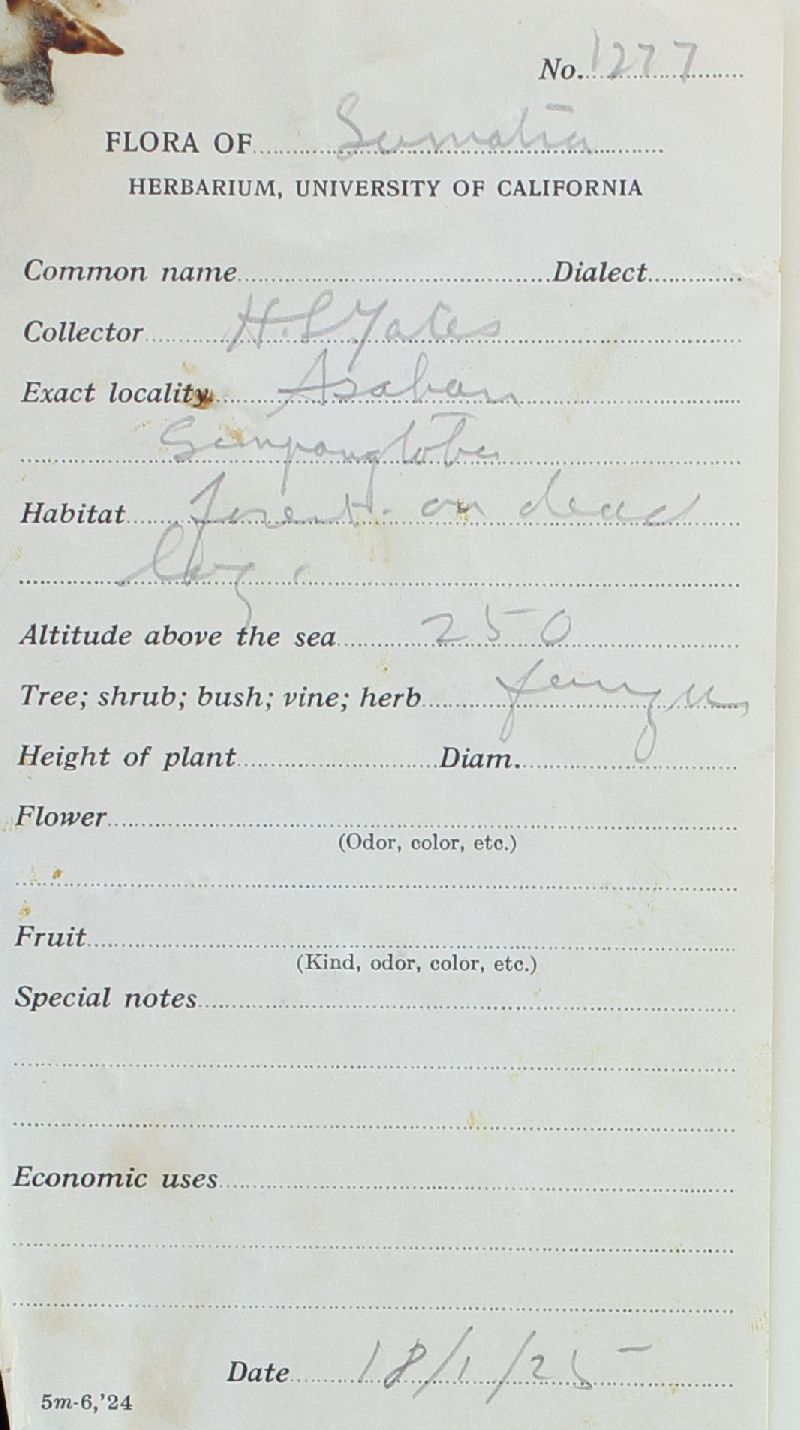 No. 1277
FLORA OF Sumatra
HERBARIUM, UNIVERSITY OF CALIFORNIA
Common name Dialect
Collector H.S Yates
Exact locality Asahan
Habitat forest. on dead
log.
Altitude above the sea 250
Tree; shrub; bush; vine; herb fungus
Height of plant Diam.
Flower
(Odor, color, etc.)
Fruit
(Kind, odor, color, etc.)
Special notes
Economic uses
Date 18/1/25
5m-6,'24